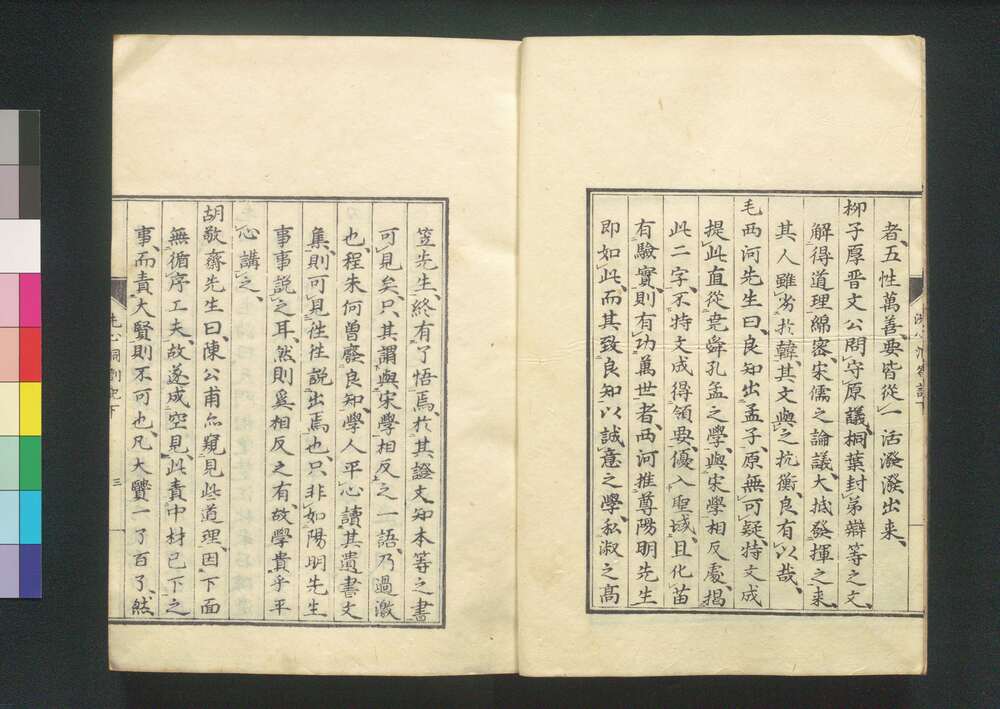 者、五性萬善、要皆從一活潑潑出来、
柳子厚晋文公問守原議、桐葉封弟辯等之文、
解得道理綿密、宋儒之論議、大抵發揮之来、
其人雖劣於韓、其文與之抗衡、良有以哉、
毛西河先生曰、良知出孟子、原無可疑、特文成
提此直從堯舜孔孟之學、與宋學相反處、揭
此二字、不特文成得領要、優入聖域、且化苗
有驗實、則有功萬世者、西河推尊陽明先生
即如此、而其致良知以誠意之學、私淑之髙
笠先生、終有了悟焉、於其證文知本等之書
可見矣、只其謂與宋學相反之一語、乃過激
也、程朱何曽廢良知、學人平心讀其遺書文
集、則可見徃徃說出焉也、只非如陽明先生
事事說之耳、然則奚相反之有、故學貴乎平
心講之、
胡敬齋先生曰、陳公甫亦窺見些道理、因下面
無循序工夫、故遂成空見、此責中材已下之
事、而責大賢則不可也、凡大賢一了百了、然
洗心洞劄記下 三